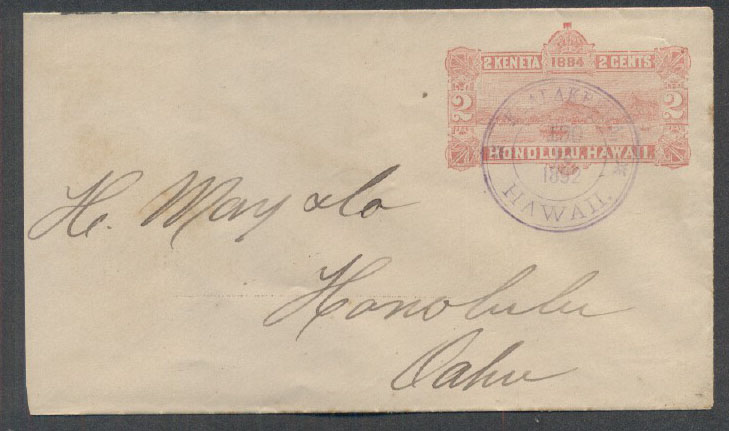 2 KENETA 1884 2 CENTS
2 2
HONOLULU, HAWAII.
1892
HAWAII.
H. May & Co
Honolulu
Oahu